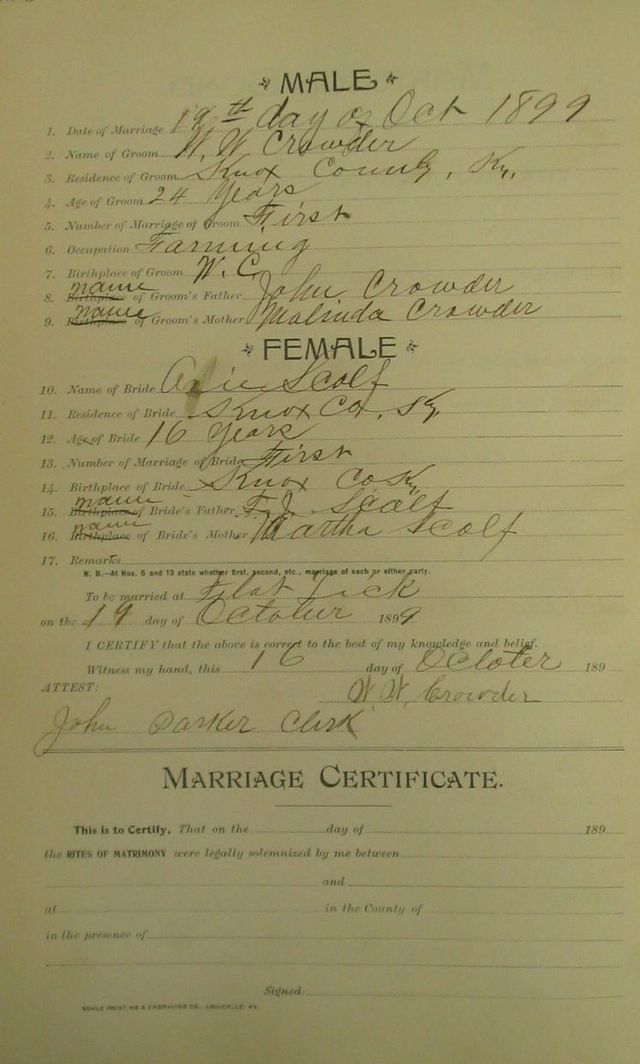 MALE
1. Date of Marriage 19th day of Oct 1899
2. Name of Groom W. W. Crowder
3. Residence of Groom Knox County, Ky,
4. Age of Groom 24 years
5. Number of Marriage of Groom First
6. Occupation Farming
7. Birthplace of Groom N. C.
8. Birthplace name of Groom's Father John Crowder
9. Birthplace name of Groom's Mother Malinda Crowder
FEMALE
10. Name of Bride Scolf
11. Residence of Bride Knox Co, Ky
12. Age of Bride 16 years
13. Number of Marriage of Bride First
14. Birthplace of Bride Knox Co Ky
15. Birthplace name of Bride's Father F. J. Scolf
16. Birthplace name of Bride's Mother Martha Scolf
17. Remarks
N. B.—At Nos. 5 and 13 state whether first, second, etc., marriage of each or either party.
To be married at Flat Lick
on the 19 day of October 1899
I CERTIFY that the above is correct to the best of my knowledge and belief.
Witness my hand, this 16 day of October 189
ATTEST: W. W. Crowder
John Parker Clerk
MARRIAGE CERTIFICATE.
This is to Certify, That on the day of 189
the RITES OF MATRIMONY were legally solemnized by me between
and
at in the County of
in the presence of
Signed
PRINTING & ENGRAVING CO., LOUISVILLE, KY.